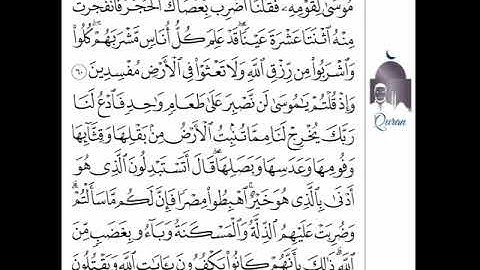 مُوسَىٰ لِقَوْمِهِۦ فَقُلْنَا ٱضْرِب بِّعَصَاكَ ٱلْحَجَرَ فَٱنفَجَرَتْ
مِنْهُ ٱثْنَتَا عَشْرَةَ عَيْنًا قَدْ عَلِمَ كُلُّ أُنَاسٍ مَّشْرَبَهُمْ كُلُوا۟
وَٱشْرَبُوا۟ مِن رِّزْقِ ٱللَّهِ وَلَا تَعْثَوْا۟ فِى ٱلْأَرْضِ مُفْسِدِينَ ٦٠
وَإِذْ قُلْتُمْ يَٰمُوسَىٰ لَن نَّصْبِرَ عَلَىٰ طَعَامٍ وَٰحِدٍ فَٱدْعُ لَنَا
رَبَّكَ يُخْرِجْ لَنَا مِمَّا تُنۢبِتُ ٱلْأَرْضُ مِنۢ بَقْلِهَا وَقِثَّآئِهَا
وَفُومِهَا وَعَدَسِهَا وَبَصَلِهَا قَالَ أَتَسْتَبْدِلُونَ ٱلَّذِى هُوَ
أَدْنَىٰ بِٱلَّذِى هُوَ خَيْرٌ ٱهْبِطُوا۟ مِصْرًا فَإِنَّ لَكُم مَّا سَأَلْتُمْ
وَضُرِبَتْ عَلَيْهِمُ ٱلذِّلَّةُ وَٱلْمَسْكَنَةُ وَبَآءُو بِغَضَبٍ مِّنَ
ٱللَّهِ ذَٰلِكَ بِأَنَّهُمْ كَانُوا۟ يَكْفُرُونَ بِـَٔايَٰتِ ٱللَّهِ وَيَقْتُلُونَ
Quran